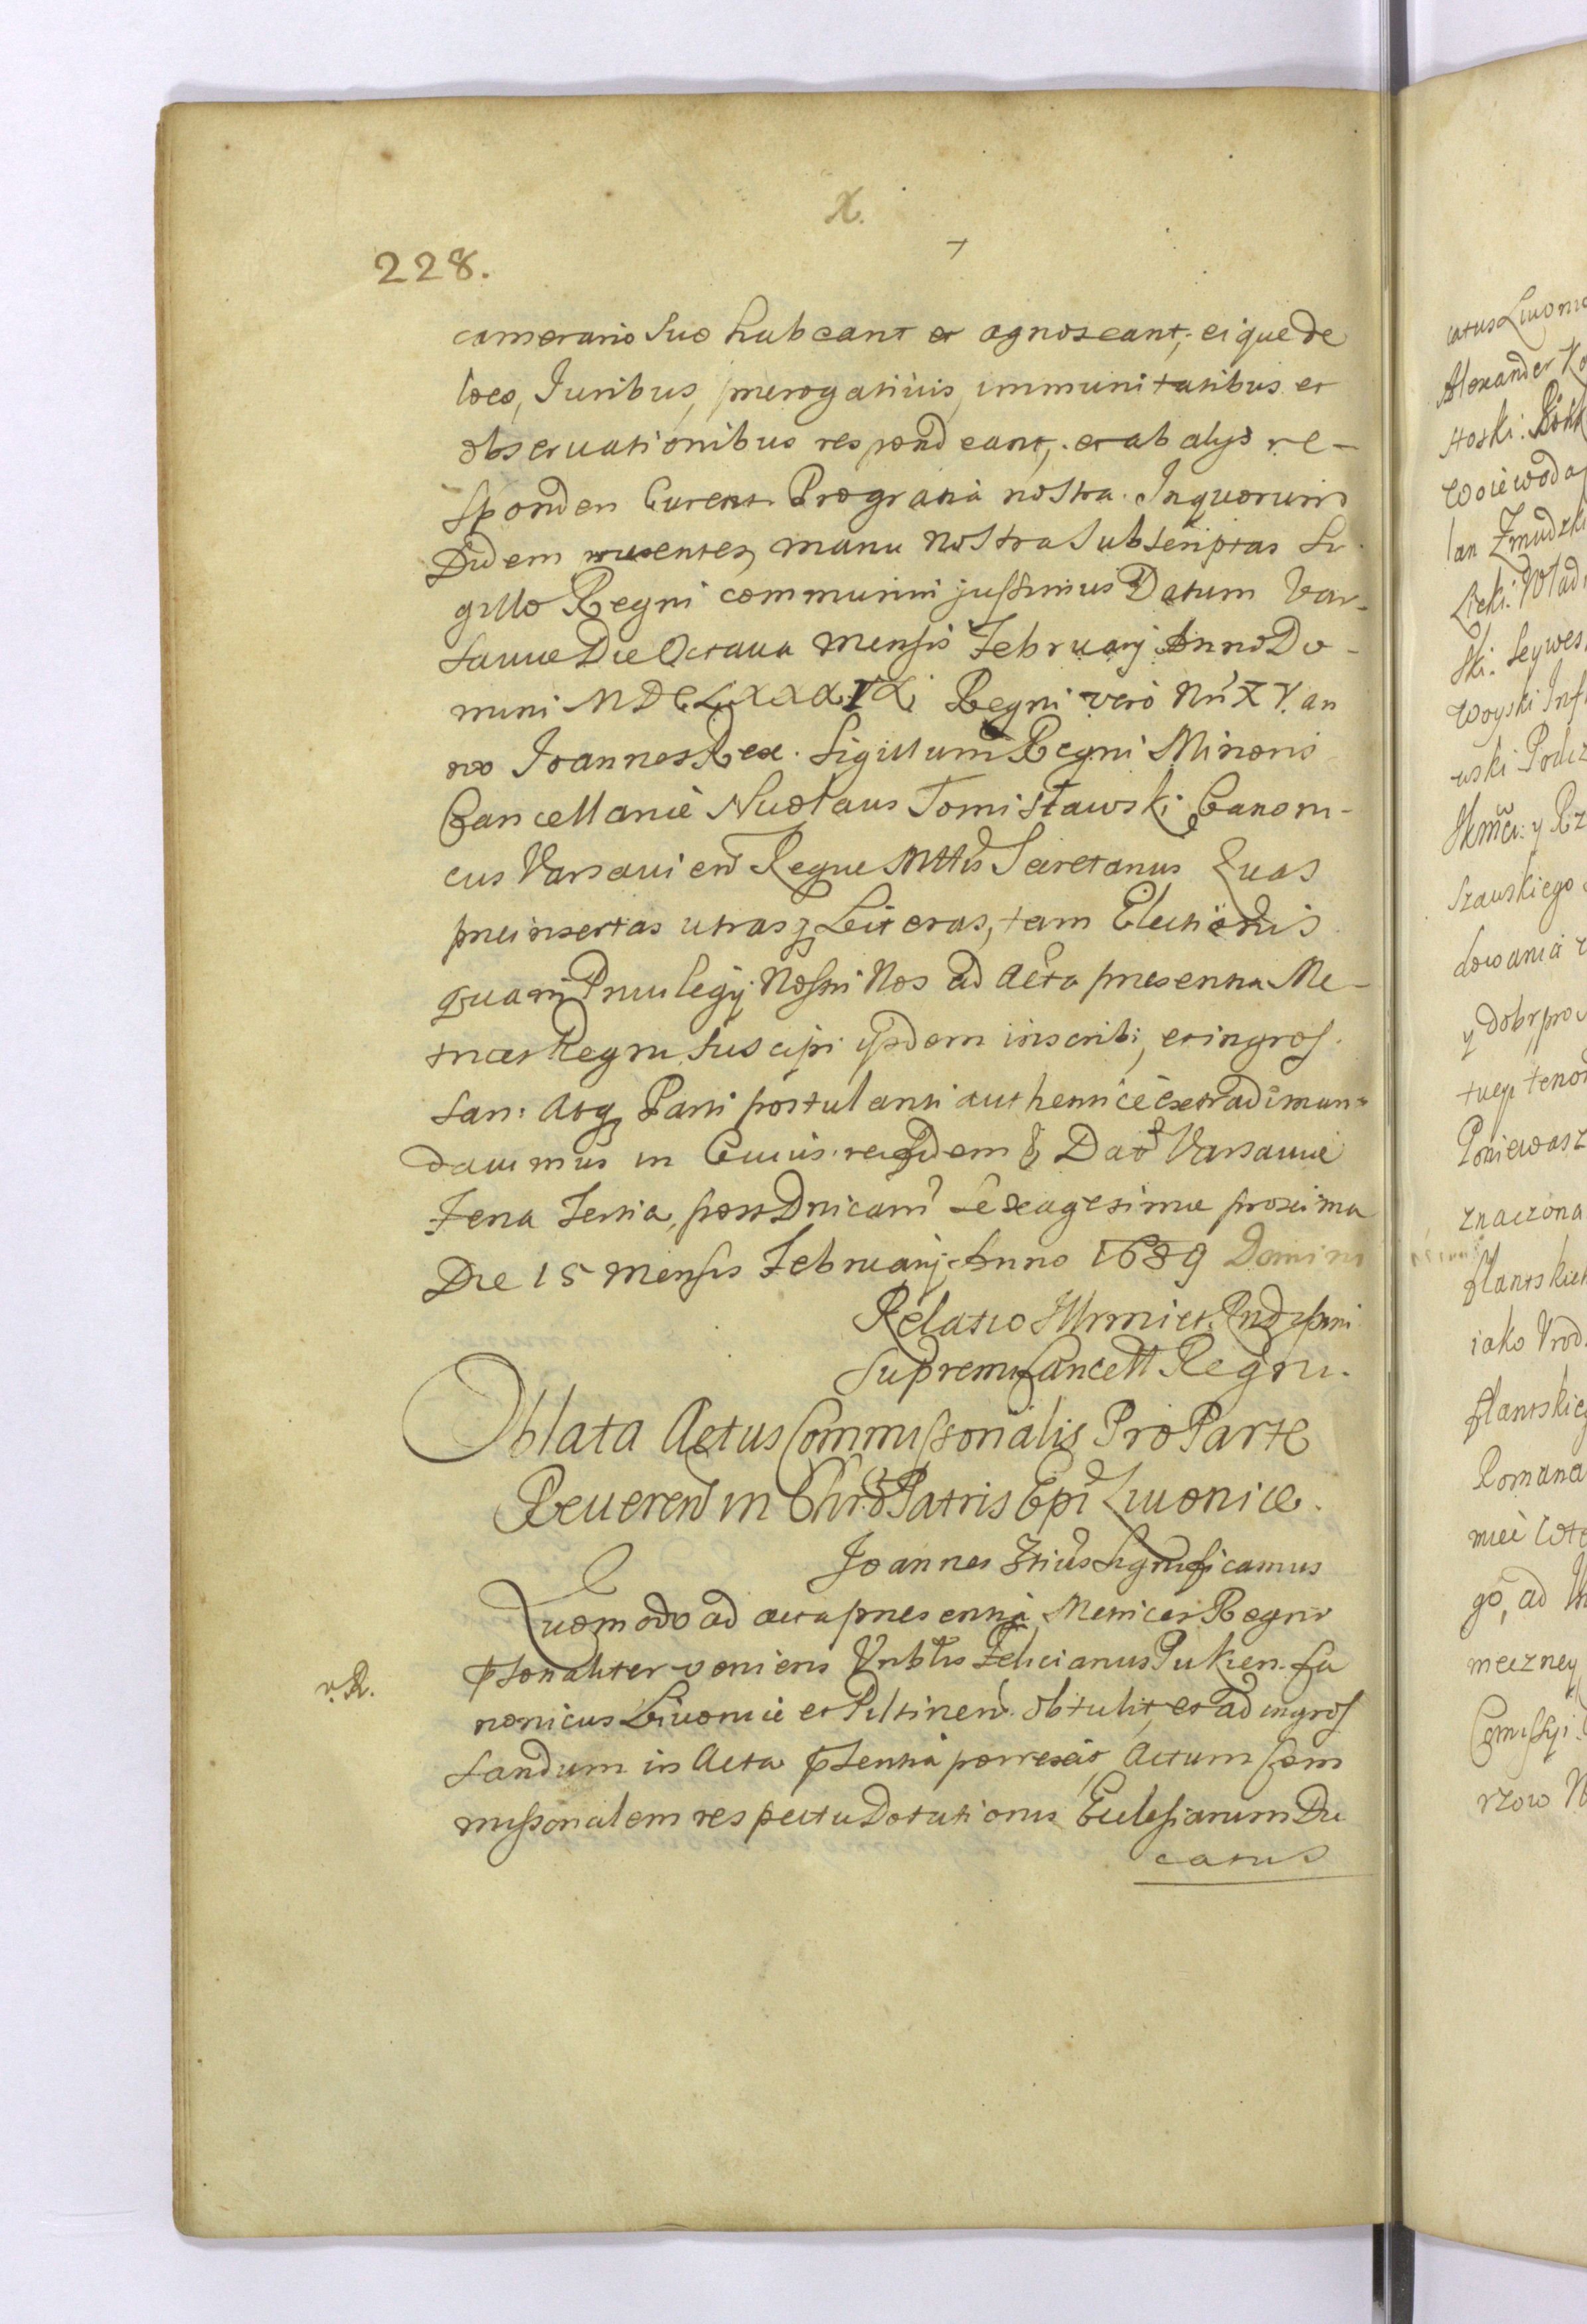 X.
228.
camerario suo habeant et agnoscant, eique de
loco, Juribus, prerogativis, immunitatibus et
obseruationibus respondeant, et ab alijs re-
sponderi Curent Progratia nostra. Inquorum
Fidem presentes manu nostra Subscriptas Si
gillo Regni communiri jussimus Datum Var-
sauiae Die Octaua Mensis Februarij Anno Do-
mini MDCLXXXIX Regni vero Nri XV. an
no Joannes Rex. Sigillum Regni Minoris
Cancellariae Nicolaus Tomisławski Canoni-
cus Varsauien Regiae Mttis Secretarius Quas
preinsertas utrasq Literas, tam Electionis
quam Priuilegij Nostri Nos ad Acta presentia Me-
trices Regni suscipi ijsdem inscribi, et ingros-
sari: Atq Parti postulanti authentice extradi man-
dauimus in Cuius rei fidem & Dat Varsauiae
Feria Tertia, post Dnicam Sexagesimae proxima
Die 15 Mensis Februarij Anno 1689 Domini
Relatio Illrmi et Rndssimi
Supremi Cancell Regni.
Oblata Actus Commissionalis Pro Parte
Reuerend in Chrō Patris Epī Liuoniae.
Joannes 3tius Significamus
Quomodo ad acta presentia Metrices Regni
psonaliter veniens Vnblis Felicianus Pukien. Ca
nonicus Liuoniae et Piltinen obtulit, et ad ingros
sandum in Acta psentia porrexit, Actum Com
missionalem respectu Dotationis Ecclesiarum Du
catus
v. R.
catus Liuonia
Alexander
Woiewoda
lan Zmudzki
Woyski
Szawskiego
dowania
y dobr pro
Poniewasz
znaczona
flantskich
iako Vrod.
flantskieg
Romana
go, ad
meczney
Comissyi
rzow